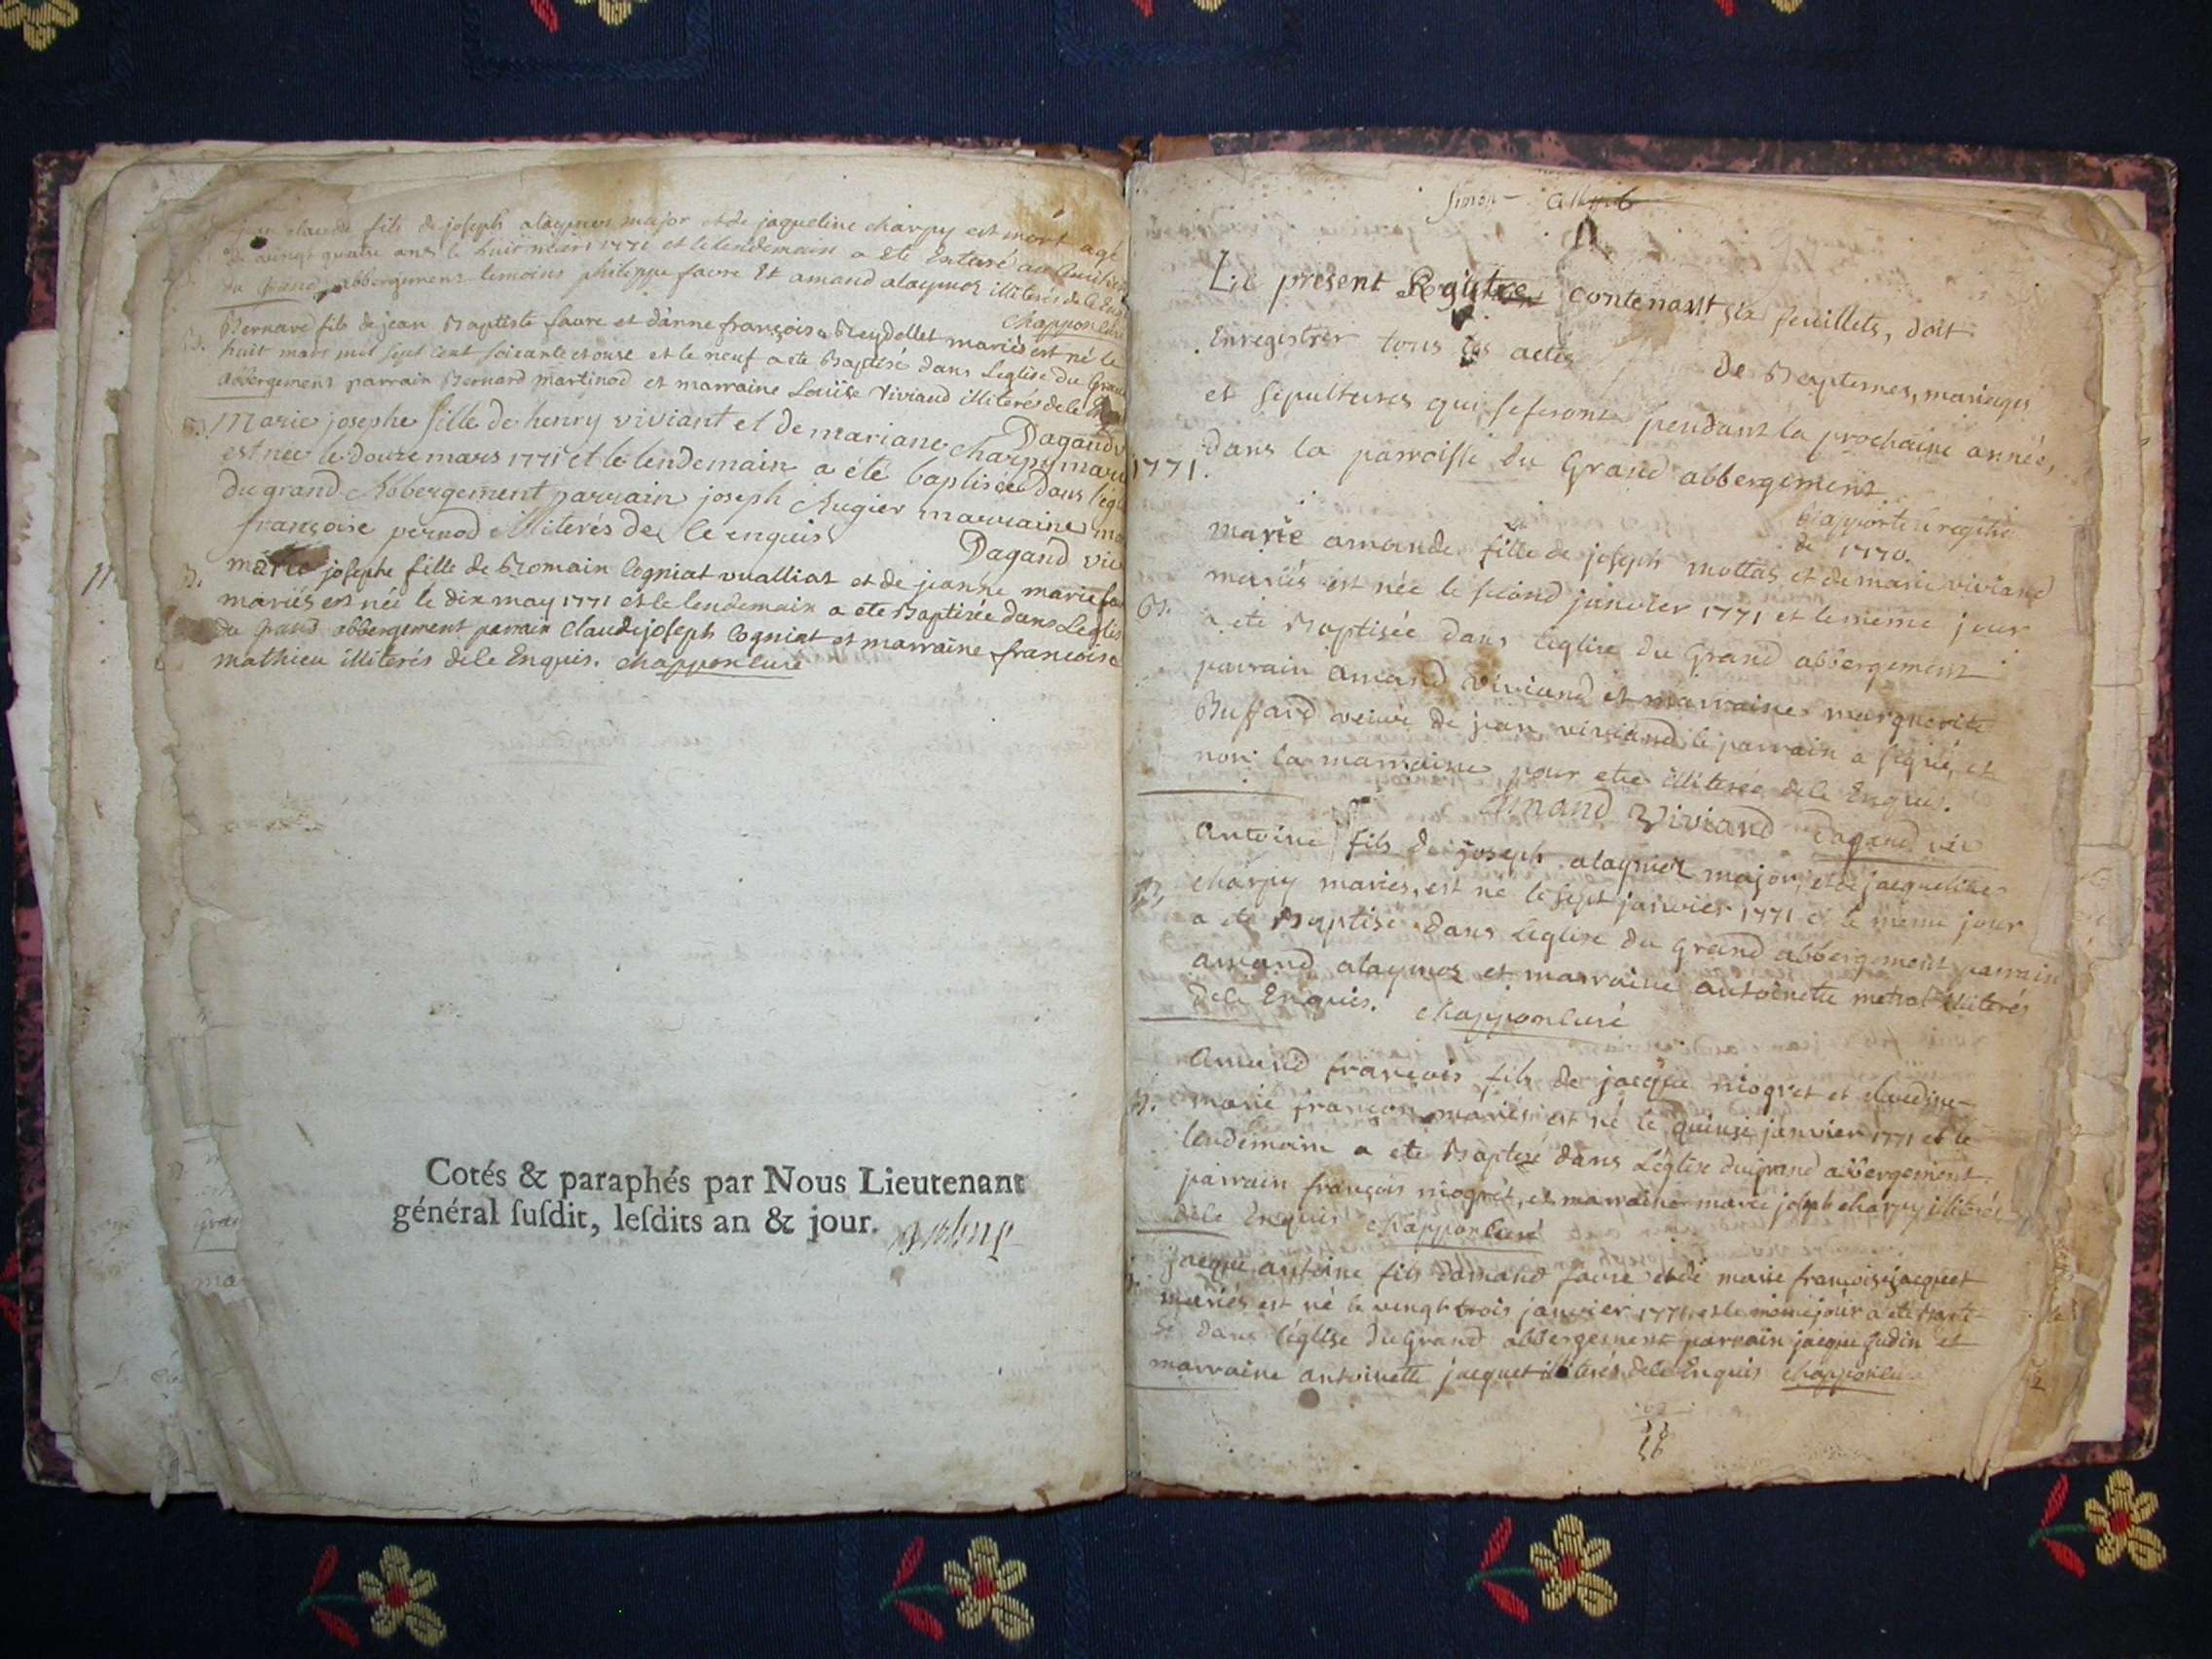 jean claude fils de joseph alaymos major et de jaqueline charpy est mort agé
de vingt quatre ans le huit mars 1771 et le lendemain a ete Enterré au
du Grand abbergement temoins philippe favre Et amand alaymos illiterés de le Enq
Chappon curé
B. Bernard fils de jean Baptiste favre et d'anne françoise Reydellet mariés est né le
huit mars mil sept cent soixante et onse et le neuf a ete Baptisé dans Leglise du Gran
abbergement parrain Bernard martinod et marraine Louïse Viviand illiteres de le
Dagand v
B. Marie josephe fille de henry viviant et de mariane charpy marié
est née le douze mars 1771 et le lendemain a été baptisée dans l'égl
du grand Abbergement parrain joseph Augier marraine ma
françoise pernod illiterés de le enquis
Dagand vic
B. marie josephe fille de Romain Cogniat vualliat et de jeanne marie fa
mariés est née le dix may 1771 et le lendemain a ete Baptisée dans Leglis
du Grand abbergement parrain Claude joseph Cogniat et marraine francoise
mathieu illiterés de le Enquis. Chappon curé
Cotés & paraphés par Nous Lieutenant
général ſuſdit, leſdits an & jour.
Simon
Le present Registre contenant six feuillets, doit
Enregistrer tous les actes de Baptemes, mariages
et sepultures qui se feront pendant la prochaine année,
1771. dans la parroisse du Grand abbergement.
Rapporté le registre
de 1770.
marie amande fille de joseph mottas et de marie viviand
mariés est née le second janvier 1771 et le même jour
B. a ete Baptisée dans l'eglise du Grand abbergement
parrain amand viviand et marraine marguerite
Buffard veuve de jean viviand le parrain a signé, et
non la marraine pour etre illiterée de le Enquis.
Amand Viviand Dagand vic
antoine fils de joseph alaymos major, et de jacqueline
B. charpy mariés, est né le sept janvier 1771 et le meme jour
a ete Baptisé dans Leglise du Grand abbergement parrain
amand alaymos et marraine antoinette metral illiterés
de le Enquis. Chappon curé
Amand françois fils de jacque niogret et claudine
B. marie françon mariés est né le quinse janvier 1771 et le
lendemain a ete Baptisé dans L'église du grand abbergement
parrain françois niogret, et marraine marie joseph charpy illiterés
de le Enquis Chappon curé
jacque antoine fils d'amand favre et de marie françoise jacquet
mariés est né le vingt trois janvier 1771, et le même jour a ete Bapti-
sé dans l'église du Grand abbergement parrain jacque Gudin et
marraine antoinette jacquet illiterés de le Enquis Chappon cu